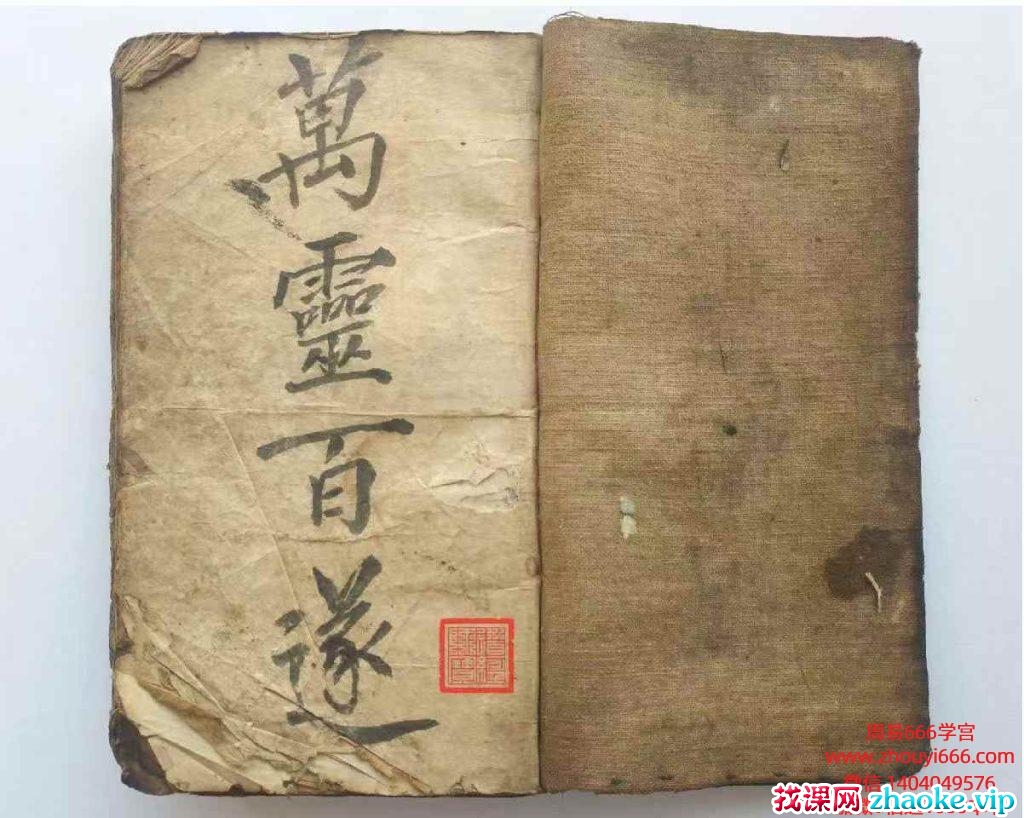 萬靈百遂
周易666学宫
www.zhouyi666.com
微信 1404049576
找课网 zhaoke.vip